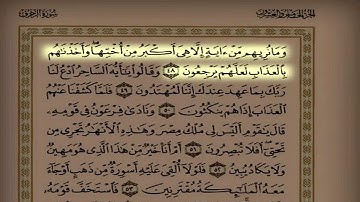 الجزء الخامس والعشرون سورة الزخرف
وَمَا نُرِيهِم مِّنْ ءَايَةٍ إِلَّا هِيَ أَكْبَرُ مِنْ أُخْتِهَا وَأَخَذْنَٰهُم
بِالْعَذَابِ لَعَلَّهُمْ يَرْجِعُونَ ٤٨ وَقَالُوا يَٰٓأَيُّهَ السَّاحِرُ ادْعُ لَنَا
رَبَّكَ بِمَا عَهِدَ عِندَكَ إِنَّنَا لَمُهْتَدُونَ ٤٩ فَلَمَّا كَشَفْنَا عَنْهُمُ
الْعَذَابَ إِذَا هُمْ يَنكُثُونَ ٥٠ وَنَادَىٰ فِرْعَوْنُ فِي قَوْمِهِ
قَالَ يَٰقَوْمِ أَلَيْسَ لِي مُلْكُ مِصْرَ وَهَٰذِهِ الْأَنْهَٰرُ تَجْرِي مِن
تَحْتِي أَفَلَا تُبْصِرُونَ ٥١ أَمْ أَنَا خَيْرٌ مِّنْ هَٰذَا الَّذِي هُوَ مَهِينٌ
وَلَا يَكَادُ يُبِينُ ٥٢ فَلَوْلَا أُلْقِيَ عَلَيْهِ أَسْوِرَةٌ مِّن ذَهَبٍ أَوْ جَاءَ
مَعَهُ الْمَلَٰئِكَةُ مُقْتَرِنِينَ ٥٣ فَاسْتَخَفَّ قَوْمَهُ